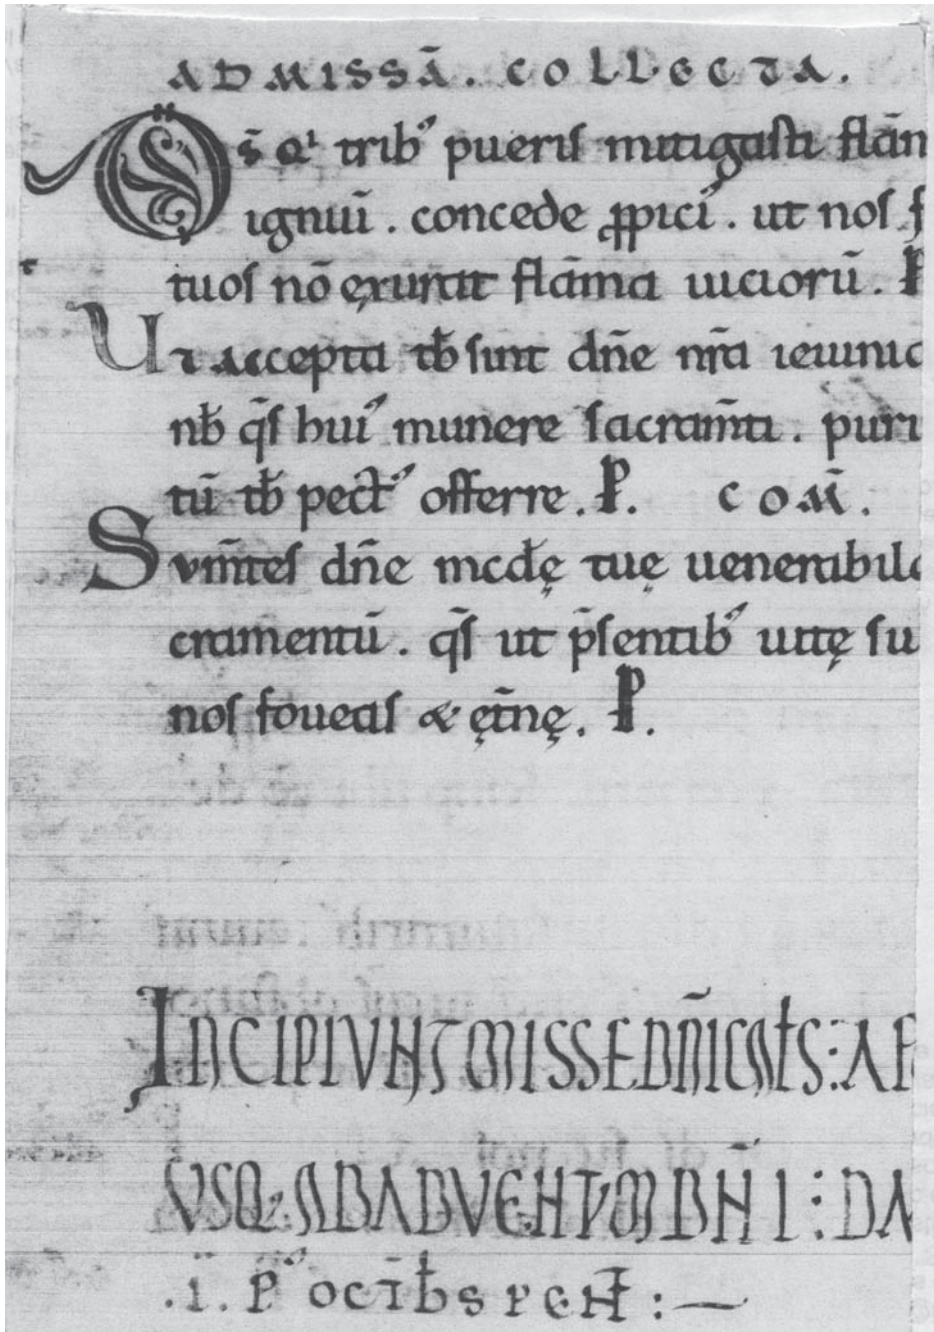 ADMISSĀ. COLLECTA.
Ds̄ qi trib᾿ pueris mitigasti flām
igniū. concede p̱pici᾿. ut nos f
tuos nō exurat flāma uicioru̅. P
Ut accepta tb̄ sint dn̄e nr̄a ieiunia
nb̄ q̄s hui᾿ munere sacram̄ti. puri
tū tb̄ pect᾿ offerre. P. COM̄.
Sum̄tes dn̄e mcdę tuę uenerabile
cramentū. q̄s ut p̄sentib᾿ uitę su
nos foueas & ęt̄nę. P.
INCIPIVNT MISSE DN̄ICALES: A P
VSQ; AD ADVENTVM DN̄I: DN̄
.i. P᾿ OCTB̄S PENT:—